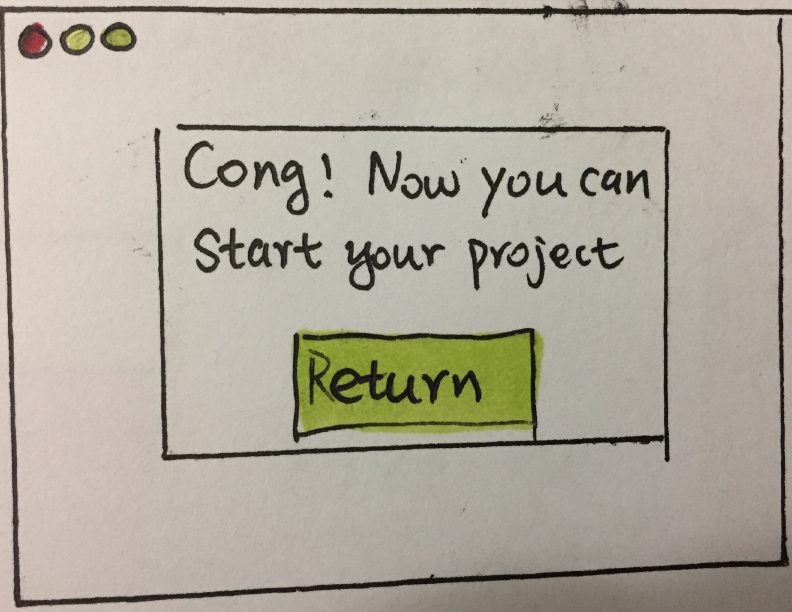 Cong! Now you can
Start your project
Return